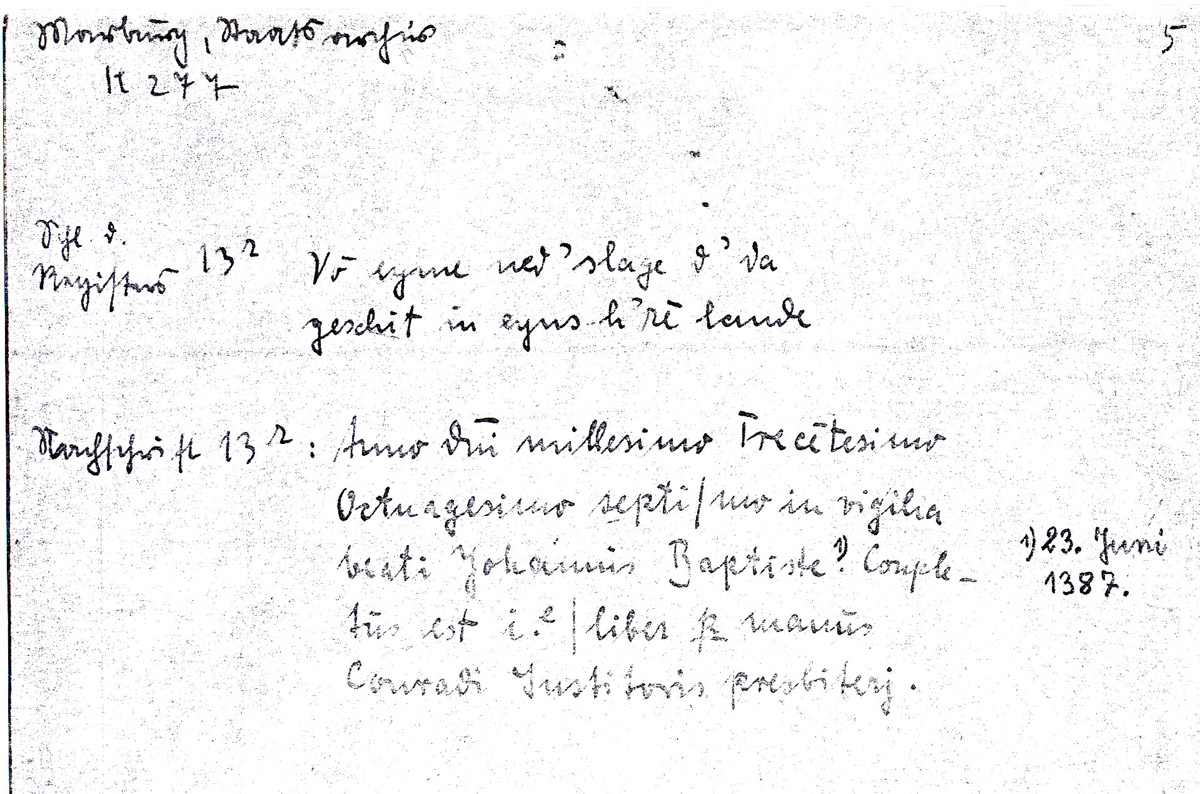 Marburg, Staatsarchiv
5
K 277
Schl. d.
Registers 13ʳ Vō eyme ned'slage d' da
geschit in eyns h'rē lande
Nachschrift 13ʳ: Anno dn̄i millesimo Trecētesimo
Octuagesimo septi/mo in vigilia
beati Johānnis Baptiste¹⁾. Comple-
tus est i.ᵉ | liber ꝑ manūs
Conradi Institoris presbiterj.
1) 23. Juni
1387.